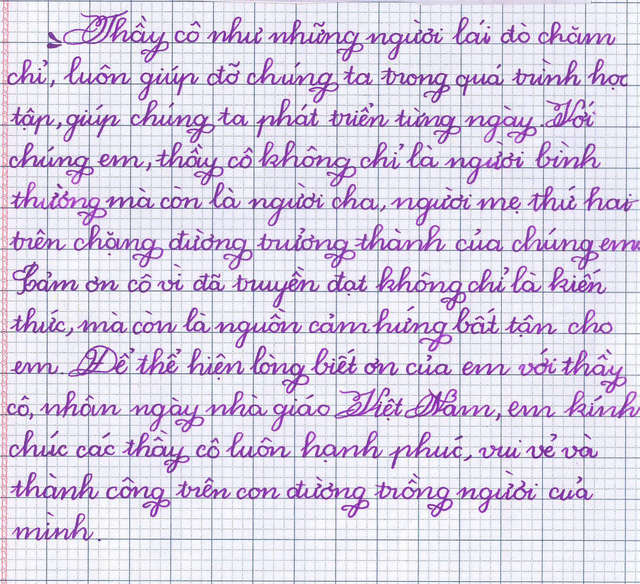 Thầy cô như những người lái đò chăm
chỉ, luôn giúp đỡ chúng ta trong quá trình học
tập, giúp chúng ta phát triển từng ngày. Với
chúng em, thầy cô không chỉ là người bình
thường mà còn là người cha, người mẹ thứ hai
trên chặng đường trưởng thành của chúng em.
Cảm ơn cô vì đã truyền đạt không chỉ là kiến
thức, mà còn là nguồn cảm hứng bất tận cho
em. Để thể hiện lòng biết ơn của em với thầy
cô, nhân ngày nhà giáo Việt Nam, em kính
chúc các thầy cô luôn hạnh phúc, vui vẻ và
thành công trên con đường trồng người của
mình.